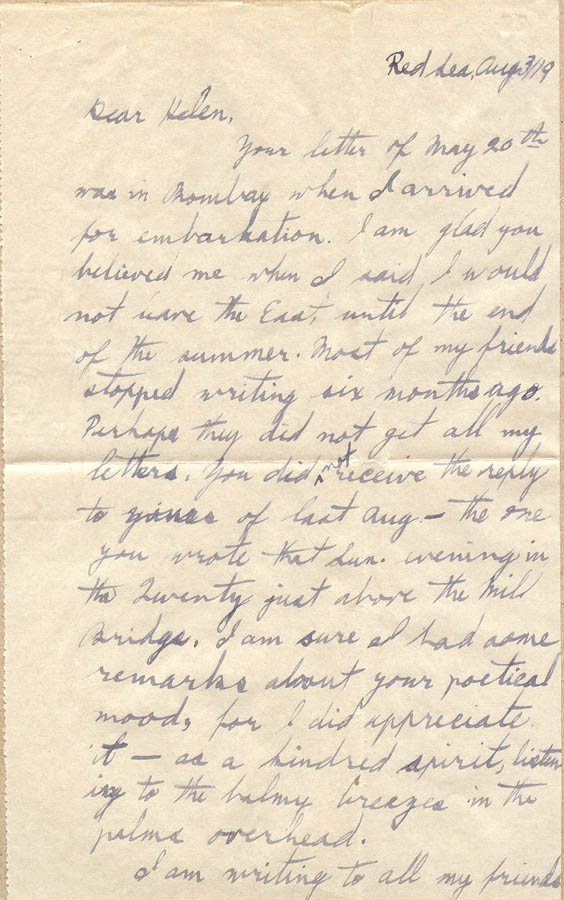 Red Sea, Aug 3/19
Dear Helen,
Your letter of May 20th
was in Bombay when I arrived
for embarkation. I am glad you
believed me when I said I would
not leave the East, until the end
of the summer. Most of my friends
stopped writing six months ago.
Perhaps they did not get all my
letters. You did not receive the reply
to yours of last Aug. – the one
you wrote that Sun. evening in
the Twenty just above the Mill
Bridge. I am sure I had some
remarks about your poetical
mood, for I did appreciate
it – as a kindred spirit, listen
ing to the balmy breezes in the
palms overhead.
I am writing to all my friends